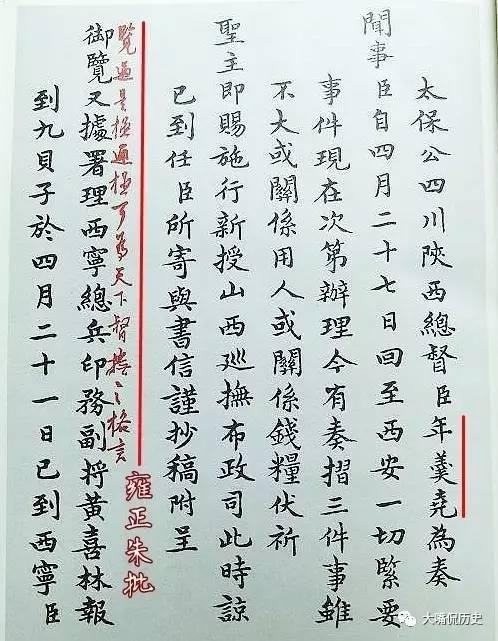 太保公四川陝西總督臣年羹堯為奏
聞事臣自四月二十七日回至西安一切緊要
事件現在次第辦理今有奏摺三件事雖
不大或關係用人或關係錢糧伏祈
聖主即賜施行新授山西巡撫布政司此時諒
已到任臣所寄與書信謹抄稿附呈
覽過是極通極可為天下督撫之格言
雍正朱批
御覽又據署理西寧總兵印務副將黃喜林報
到九貝子於四月二十一日已到西寧臣
大嘴侃历史